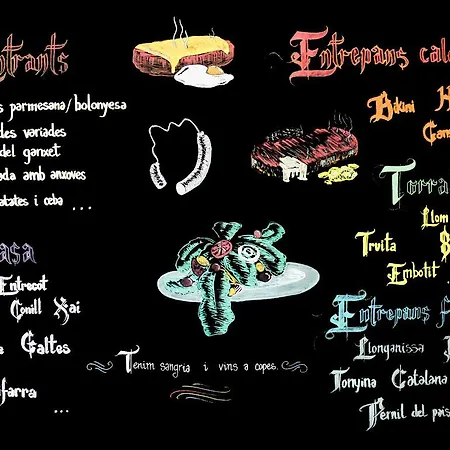 ntrants
s parmesana/bolonyesa
des variades
del ganxet
ada amb anxoves
atates i ceba ...
asa
Entrecot
Conill Xai
e Galtes
farra
...
Tenim sangria i vins a copes.
Entrepans cal
Bikini H
Torra
Llom
Truita
Embotit ...
Entrepans f
Llonganissa
Tonyina Catalana
Pernil del pais